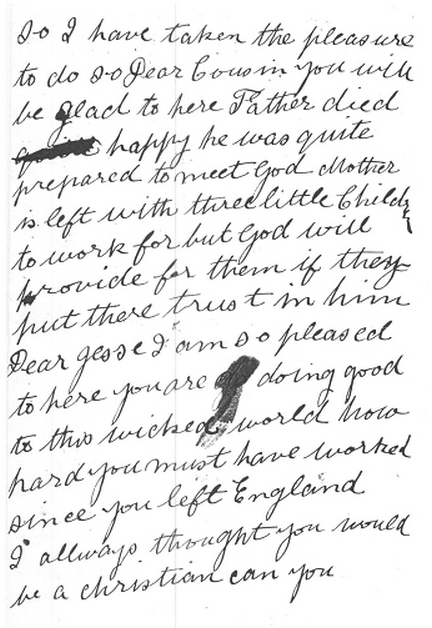 so I have taken the pleasure
to do so Dear Cousin you will
be glad to here Father died
happy he was quite
prepared to meet God Mother
is left with three little Childr
to work for but God will
provide for them if they
put there trust in him
Dear Jesse I am so pleased
to here you are doing good
to this wicked world how
hard you must have worked
since you left England
I allways thought you would
be a christian can you